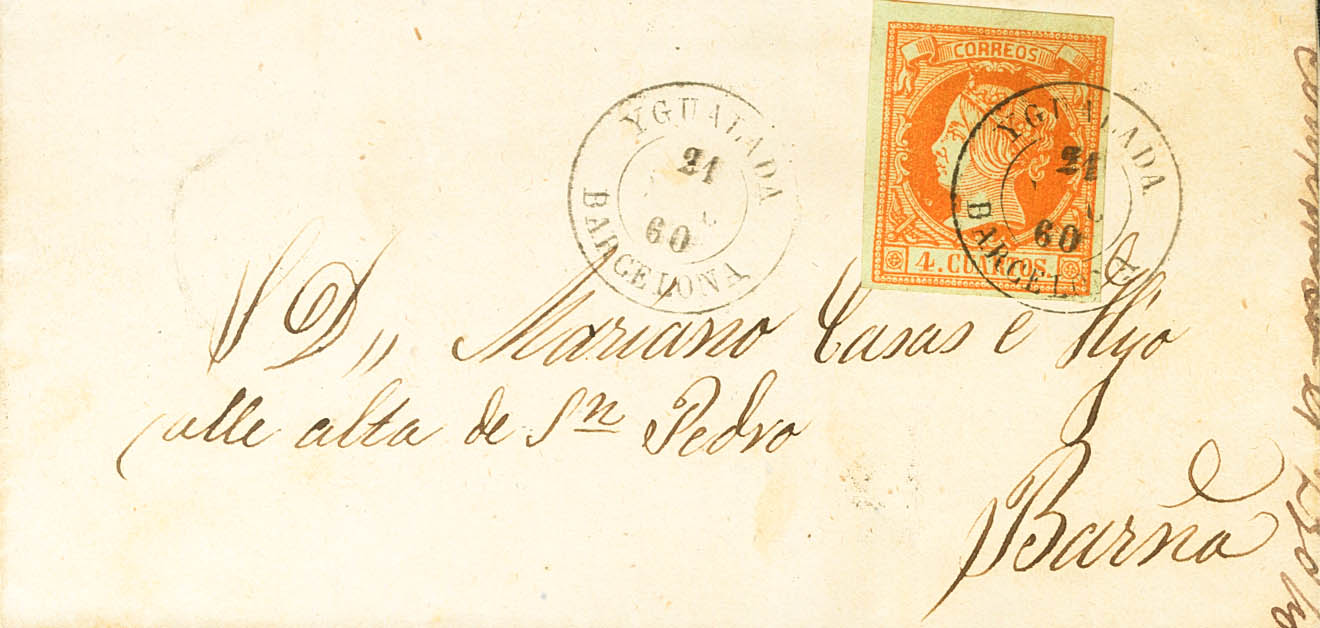 CORREOS
4. CUARTOS.
YGUALADA
21
60
BARCELONA
YGUALADA
21
60
BARCELONA
S D,, Mariano Casas e Hijo
calle alta de Sn Pedro
Barna